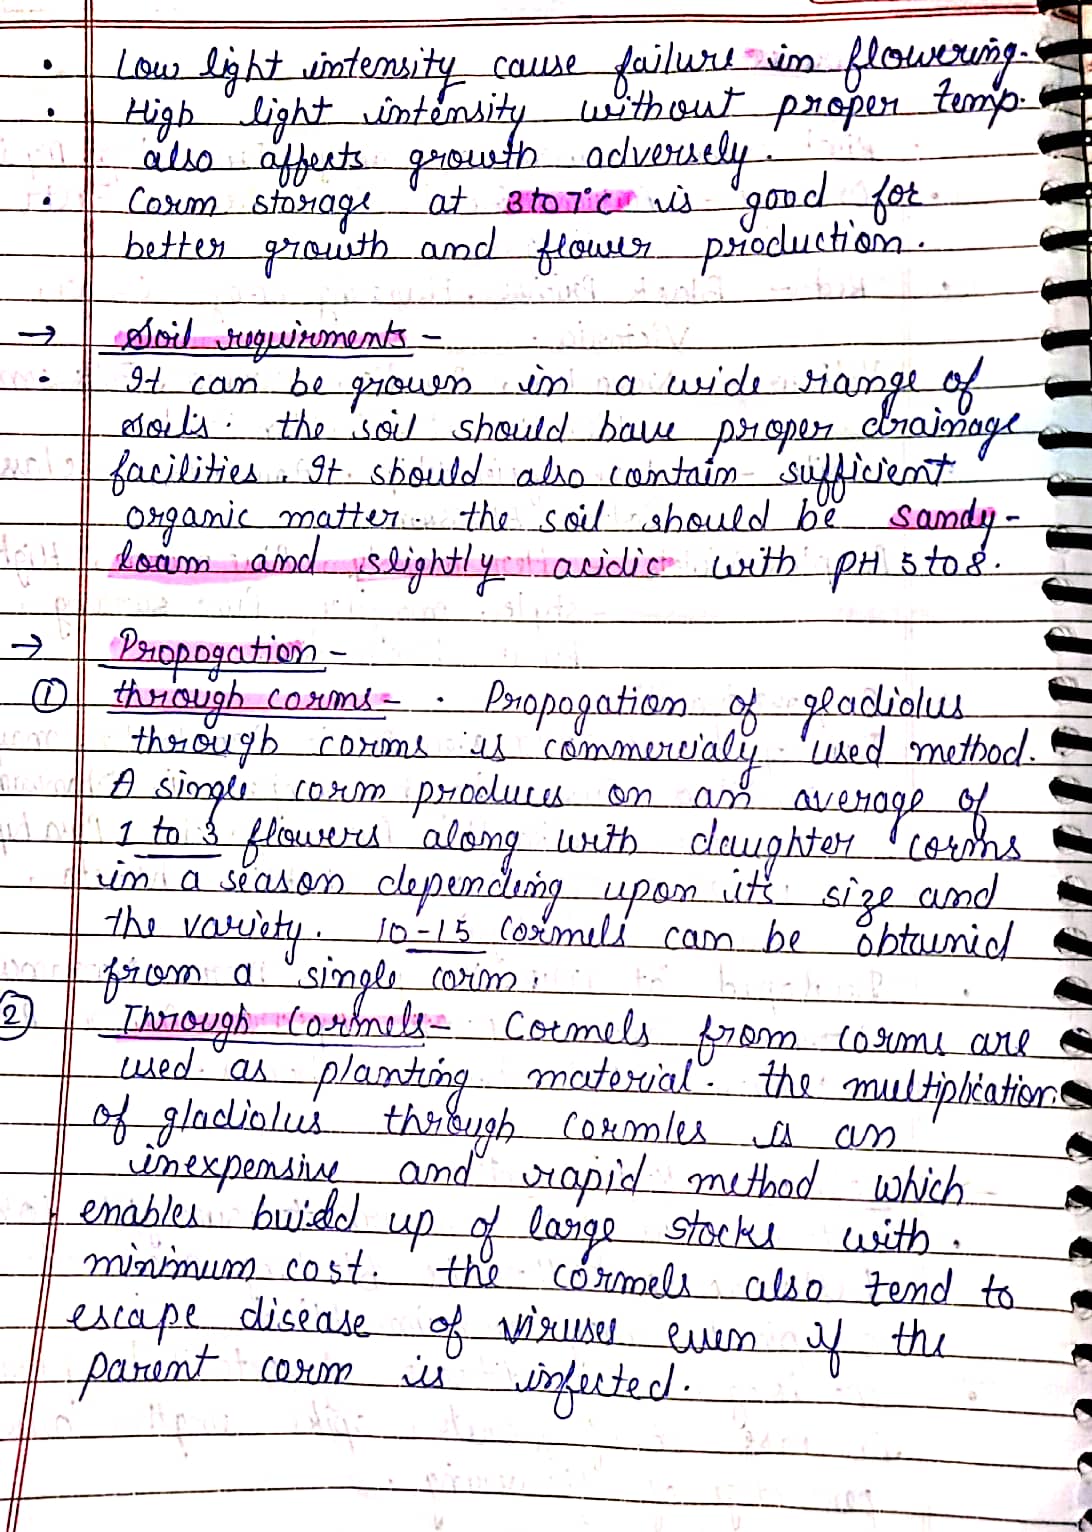 • Low light intensity cause failure in flowering.
• High light intensity without proper temp.
also affects growth adversely.
• Corm storage at 3 to 7°C is good for
better growth and flower production.
→ Soil requirments -
• It can be grown in a wide range of
soils. the soil should have proper drainage
facilities. It should also contain sufficient
organic matter. the soil should be sandy-
loam and slightly acidic with PH 5 to 8.
→ Propogation -
① through corms - . Propogation of gladiolus
through corms is commercialy used method.
A single corm produces on an average of
1 to 3 flowers along with daughter corms
in a season depending upon its size and
the variety. 10-15 cormels can be obtainid
from a single corm.
② Through Cormels - Cormels from corms are
used as planting material. the multiplication
of gladiolus through cormles is an
inexpensive and rapid method which
enables build up of large stocks with.
minimum cost. the cormels also tend to
escape disease of viruses even if the
parent corm is infected.